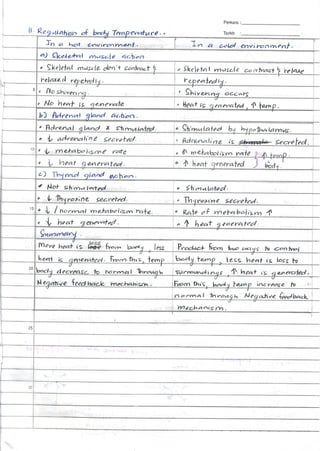 Perkara :
Tarikh :
B Regulation of body Temperature..
In a hot environment.
In a cold environment.
a) Skeletal muscle action
• Skeletal muscle don't contract &
relaxed repeatedly.
• Skeletal muscle contract & relax
repeatedly.
• No shivering.
• Shivering occurs
• No heat is generate
• Heat is generated, ↑ temp.
b) Adrenal gland action.
• Adrenal gland X stimulated.
• Stimulated by hypothalamus.
• ↓ adrenaline secreted
• Adrenaline is secreted.
• ↓ metabolisme rate
• ↑ metabolism rate
↑ temp.
• ↓ heat generated
• ↑ heat generated
body
c) Thyroid gland action.
• Not stimulated
• Stimulated.
• ↓ Thyroxine secreted.
• Thyroxine secreted.
• ↓ / normal metabolism rate
• Rate of metabolism ↑
• ↓ heat generated.
• ↑ heat generated
Summary
More heat is loss from body, less
heat is generated. From this, temp
body decrease to normal through
Negative feedback mechanism.
Product from two ways to control
body temp, less heat is loss to
surroundings, ↑ heat is generated.
From this, body temp increase to
normal through Negative feedback
mechanism.